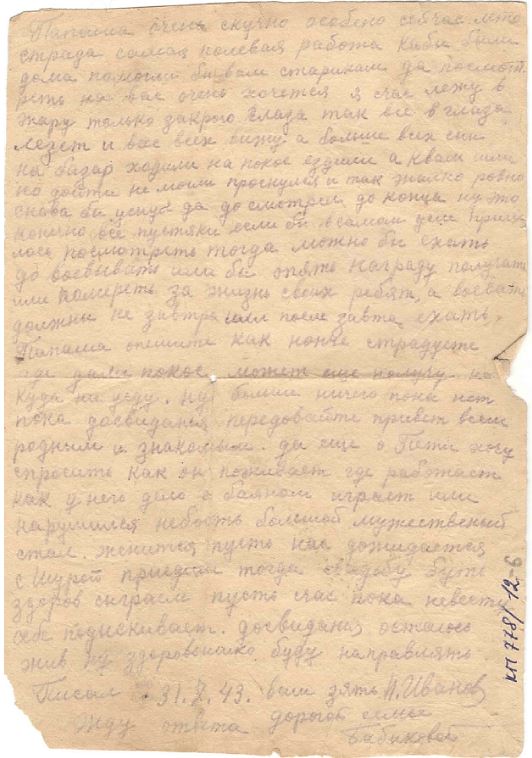 Папаша очень скучно особено сейчас лето
страда самая полевая работа кабы были
дома помогли бы вам старикам да посмот
реть на вас очень хочется я счас лежу в
жару только закрою глаза так все в глаза
лезет и вас всех вижу а больше всех
на базар ходили на покос ездили а квам шли
но дойти не могли проснулся и так жалко ровно
снова бы уснул да досмотрел до конца ну это
конечно всё пустяки если бы в самом деле приш
лось посмотреть тогда можно бы ехать
до воевывать или бы опять награду получать
или помереть за жизнь своих ребят, а воевать
должны не завтра или после завтра ехать.
Папаша опешите как нонче страдуете
где дали покос, может еще получу
куда не уеду. ну больше ничего пока нет
пока досвидания передовайте привет всем
родным и знакомым. да еще о Пети хочу
спросить как он поживает где работает
как у него дело с баяном играет или
нарушился небось большой мужественый
стал. женится пусть нас дожидается
с Шурой приедем тогда свадьбу буте
здоров сыграем пусть счас пока невесту
себе подыскивает. досвидания осталось
жив ну здоровенько буду направлять
Писал 31.7.43. ваш зять И. Иванов
Жду ответа дорогой семье
Бабиковой
КП 778/126